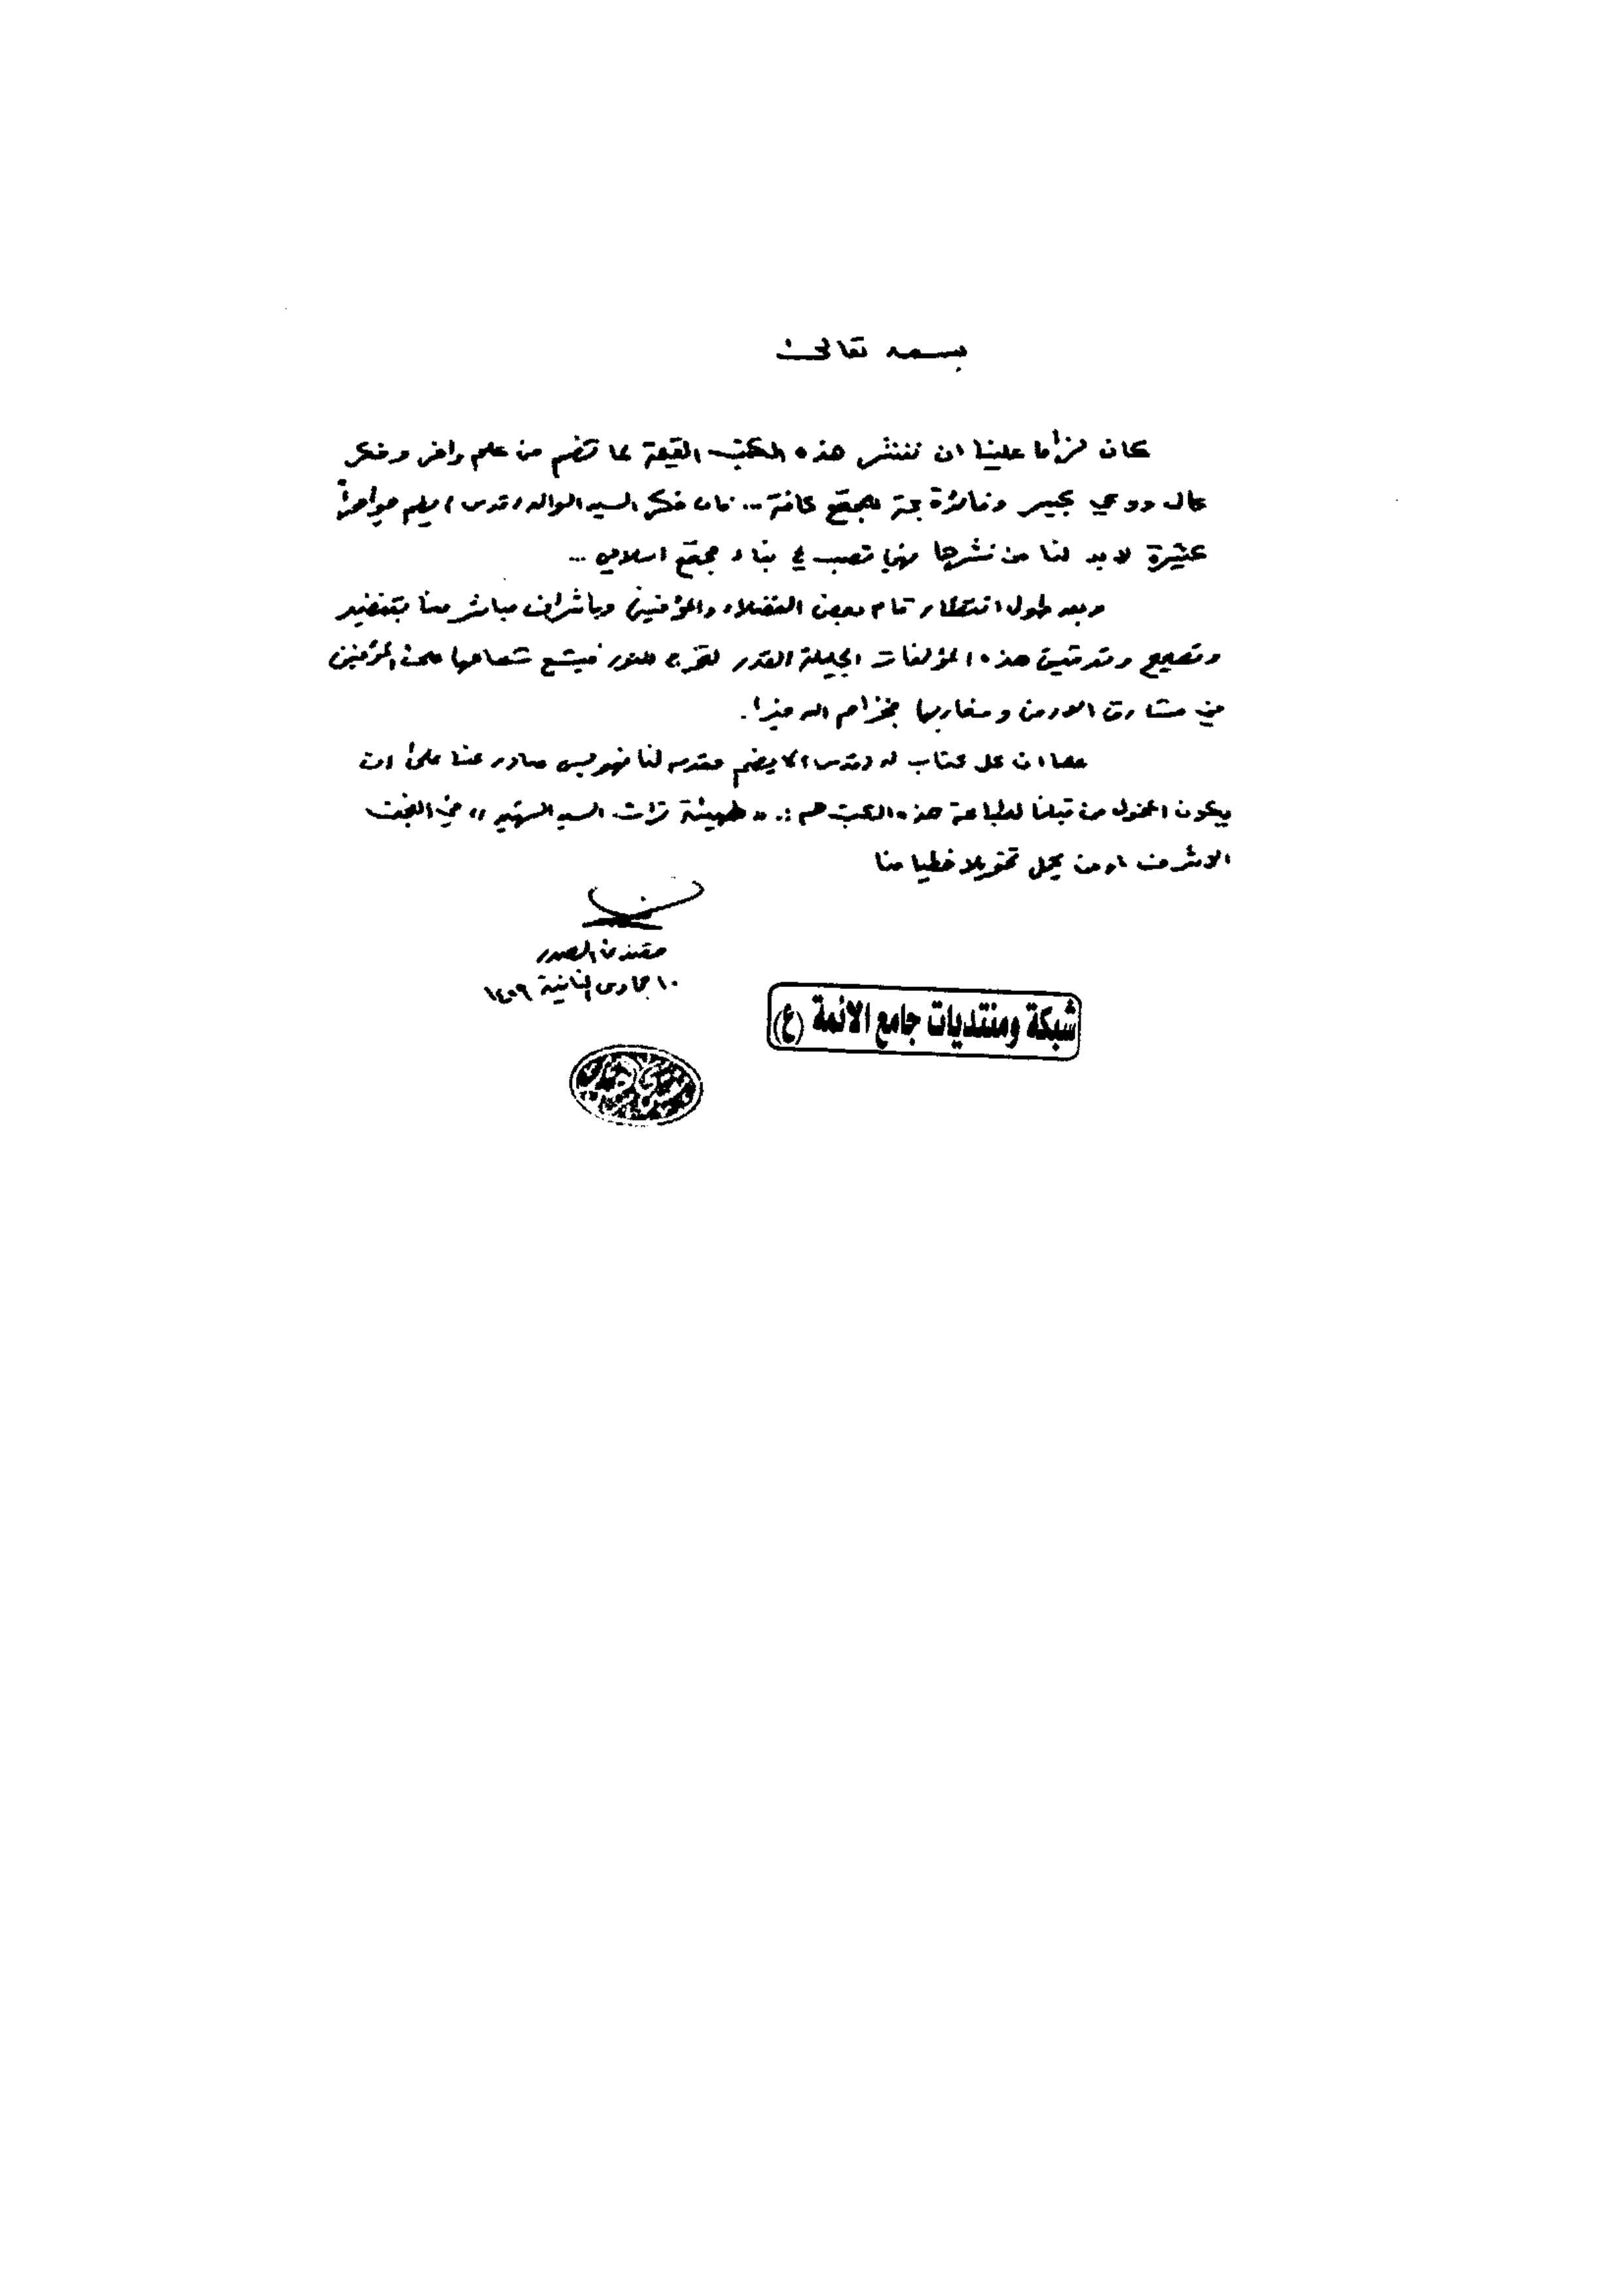 بسمه تعالى
كان لزاما علينا ان ننشر هذه الكتب القيمة لما تضم من علم وافر وفكر
عال ووعي كبير وفائدة جمة للمجتمع كافة... فان فكر السيد الوالد (قدس) يضم مواضيع
كثيرة لابد لنا من نشرها فهي تصب في بناء مجتمع اسلامي ...
وبعد طول انتظار قام بعض الفضلاء والمؤمنين وباشراف مباشر منا بتنضيد
وتصحيح وتدقيق هذه المؤلفات الجليلة القدر لتخرج للنور فيشع شعاعها على المؤمنين
في مشارق الارض ومغاربها فجزاهم الله خيرا.
علما ان كل كتاب له (قدس) لا يضم مقدمه لنا فهو ليس صادر عنا على ان
يكون المخول من قبلنا لطباعة هذه الكتب هم :. «هيئة تراث السيد الشهيد» في النجف
الاشرف او من يحمل تخويلا خطيا منا
مقتدى الصدر
١٠ جمادى الثانية ١٤٢٩
شبكة ومنتديات جامع الائمة (ع)